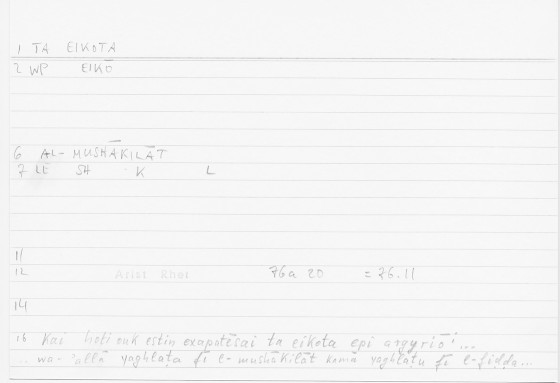 1 TA EIKOTA
2 WP EIKŌ
6 AL- MUSHĀKILĀT
7 LE SH K L
11
12 Arist Rhet 76a 20 = 76.11
14
16 Kai hoti ouk estin exapatēsai ta eikota epi argyriō'...
.. wa- 'allā yaghlaṭa fī l-mushākilāt kamā yaghlaṭu fī l-fiḍḍa...